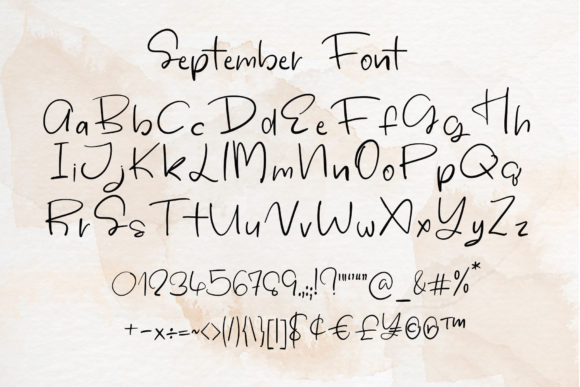 September Font
AaBbCcDdEeFfGgHh
IiJjKkLlMmNnOoPpQq
RrSsTtUuVvWwXxYyZz
0123456789.,:;!?'"""@_&#%*
+-x÷=~<>(/){\}[|]$¢€£¥©®™